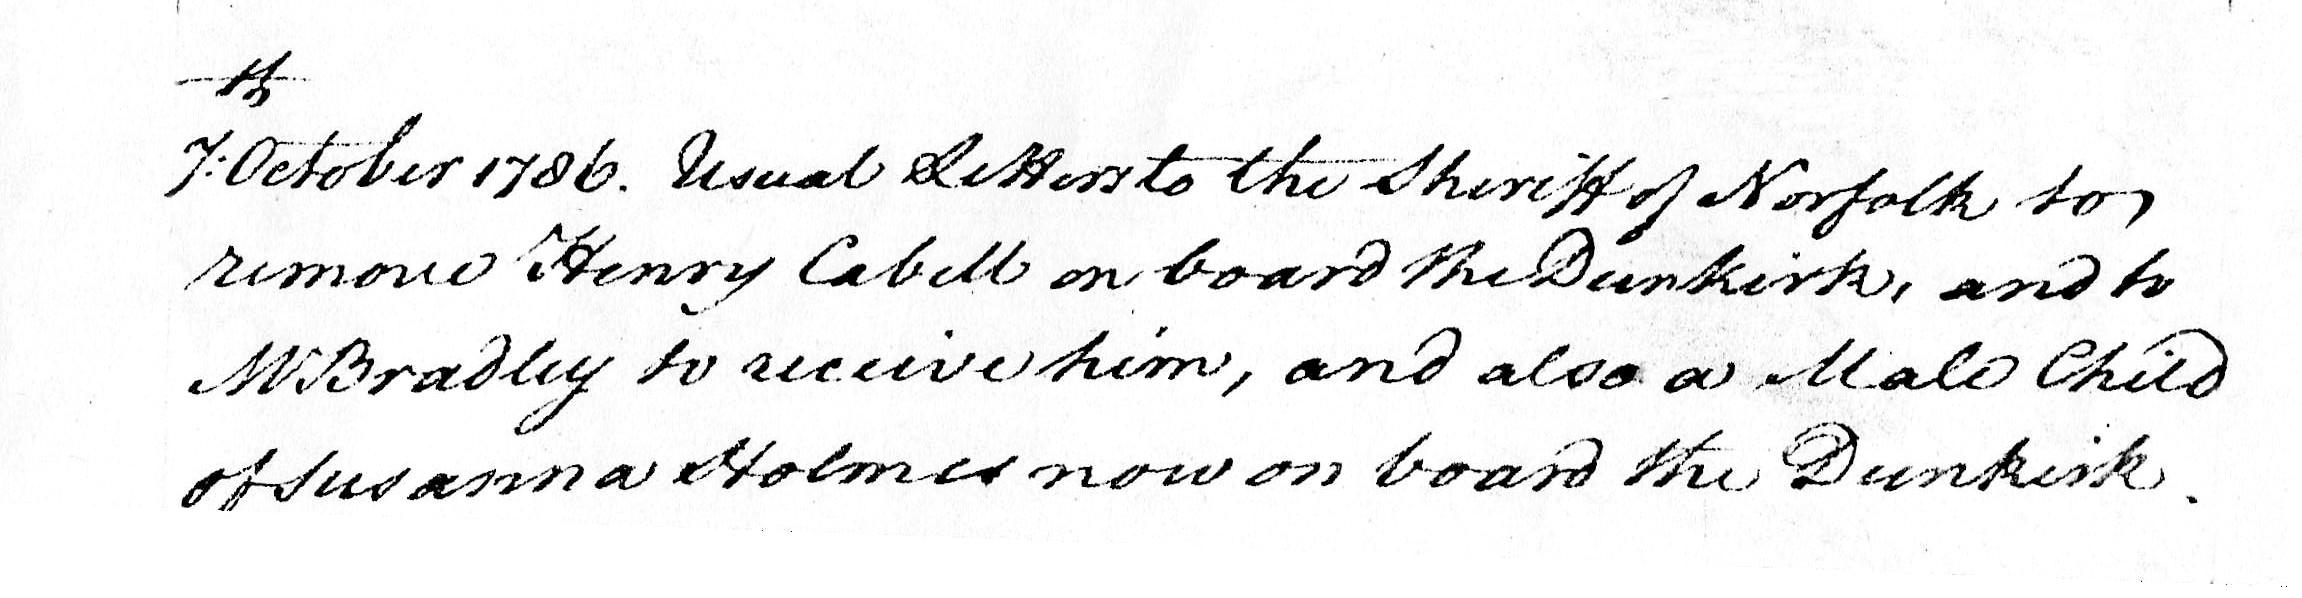 th
7. October 1786. Usual Letters to the Sheriff of Norfolk to
remove Henry Cabell on board the Dunkirk, and to
Mr Bradley to receive him, and also a Male Child
of Susanna Holmes now on board the Dunkirk.